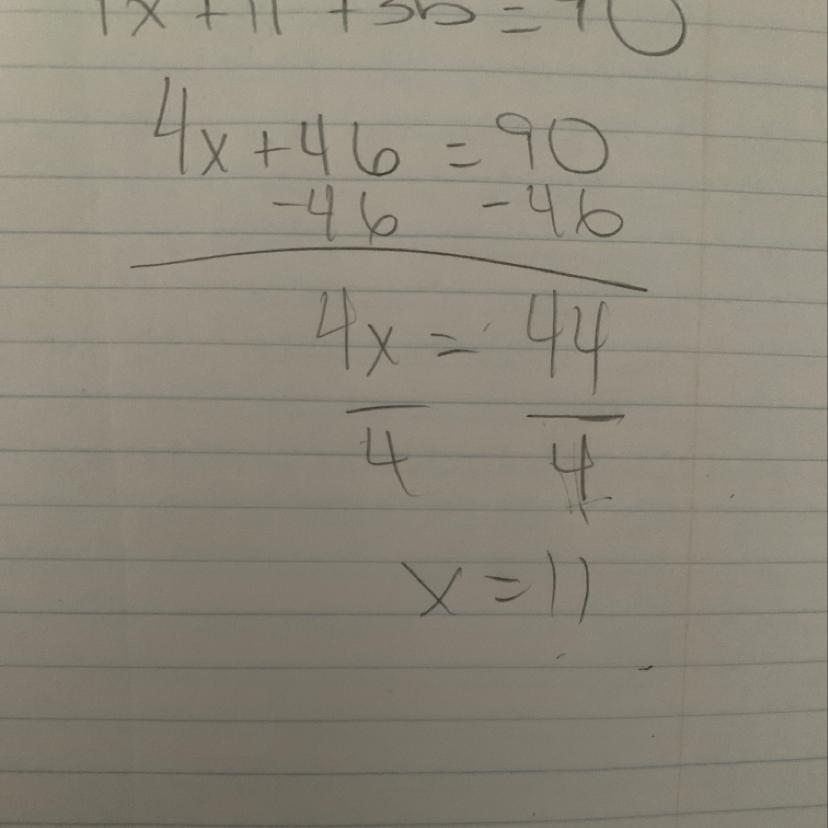 x + 11 + = 90
4x + 46 = 90
-46 -46
4x = 44
4 4
x = 11